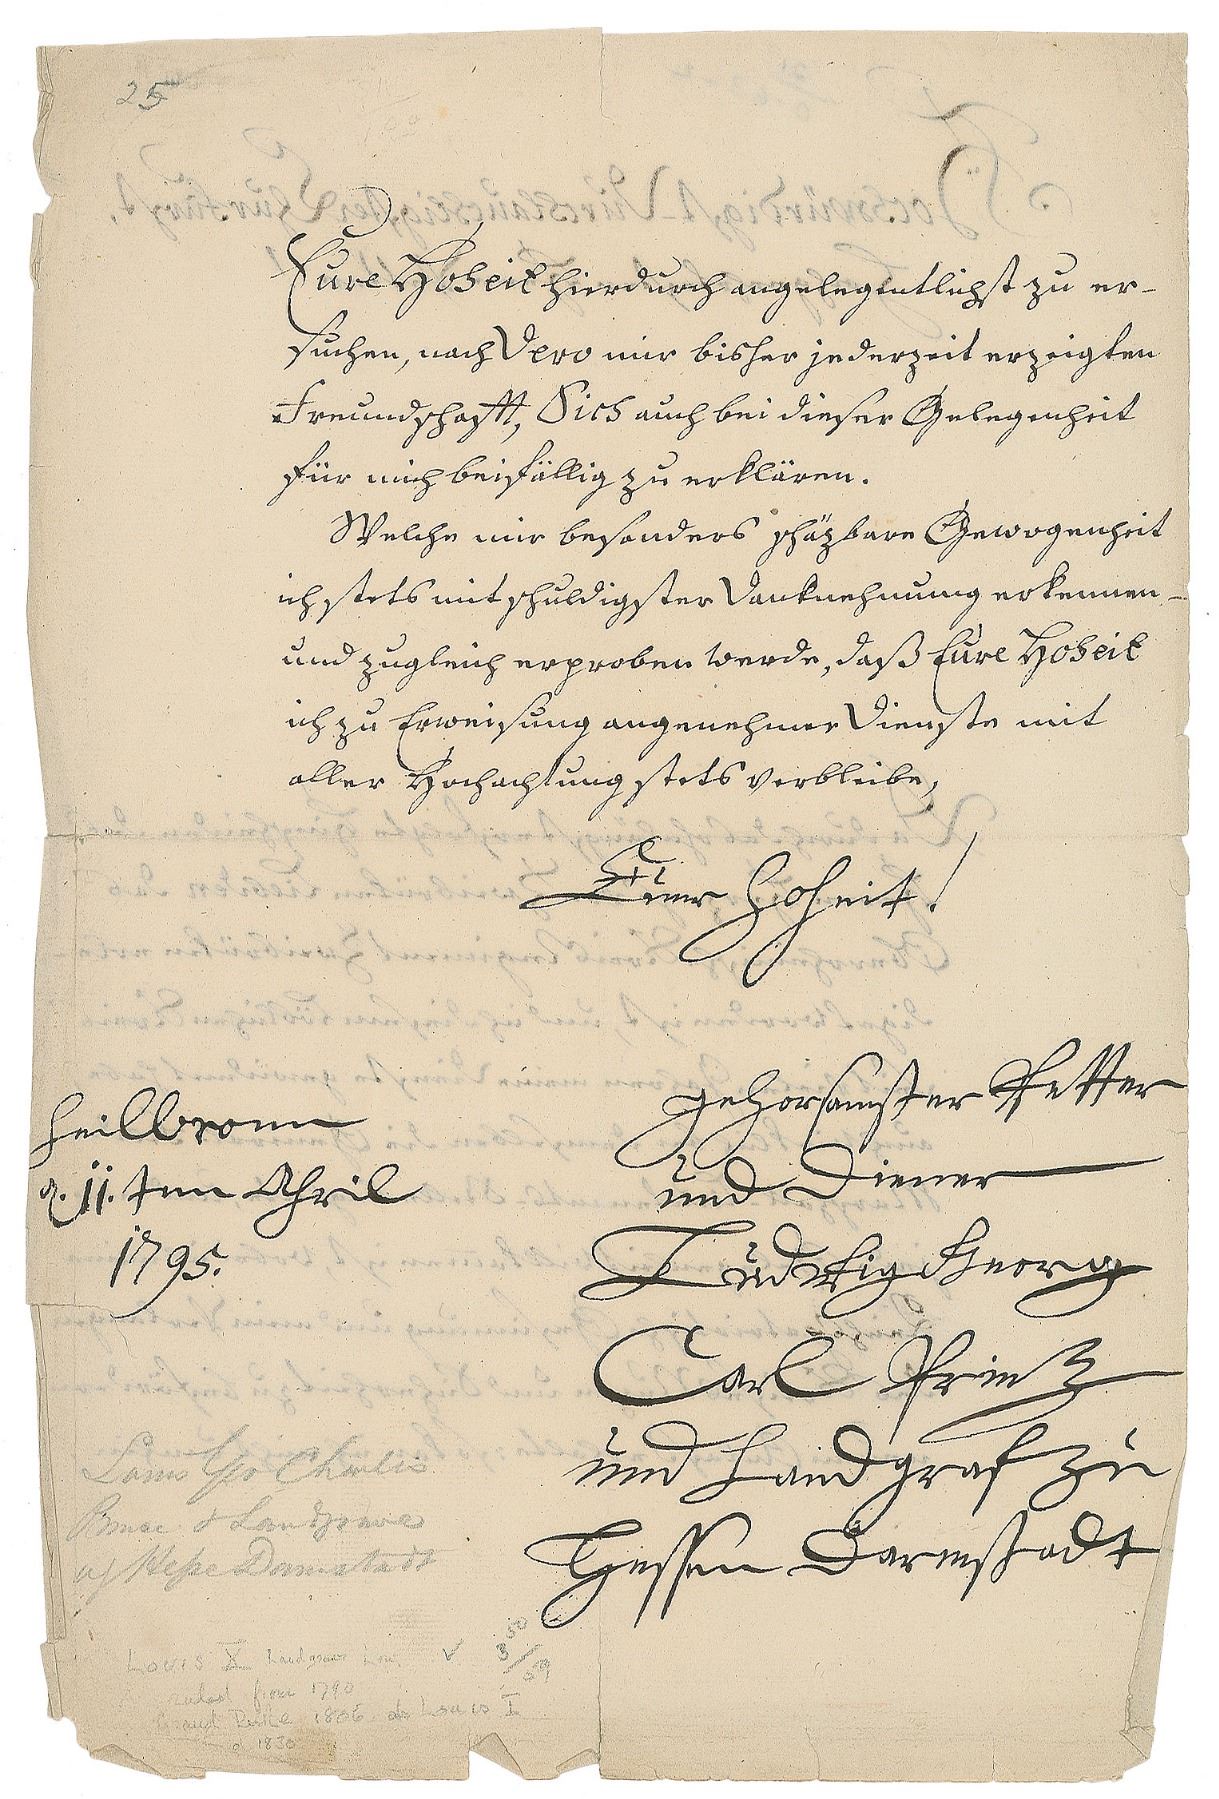 25
Eure Hoheit hierdurch angelegentlichst zu er-
suchen, nach Dero mir bisher jederzeit erzeigten
Freundschafft, Sich auch bei dieser Gelegenheit
für mich beifällig zu erklären.
Welche mir besonders schäzbare Gewogenheit
ich stets mit schuldigster Danknehmung erkennen-
und zugleich erproben werde, daß Eure Hoheit
ich zu Erweisung angenehmer Dienste mit
aller Hochachtung stets verbleibe,
Euer Hoheit!
gehorsamster Vetter
und Diener
Ludwig Georg
Carl Prinz
und Landgraf zu
Hessen Darmstadt
Heilbronn
d. 11. ten April
1795.
Louis Geo Charles
Prince & Landgrave
of Hesse Darmstadt
Louis X Landgrave
from 1790
Grand Duke 1806 as Louis I
d 1830
50
3/59